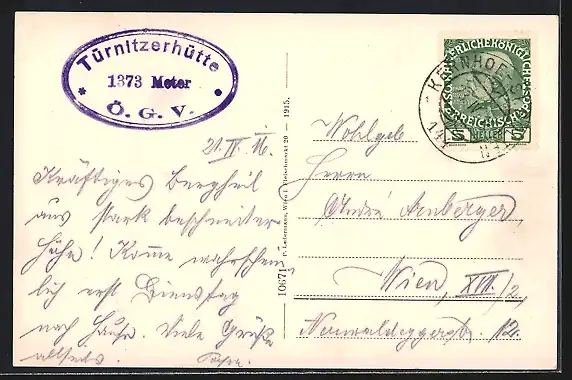 Türnitzerhütte
1373 Meter
Ö. G. V.
21. IV. 16.
Kräftiges Bergheil
aus stark beschneiter
Höhe! Komme wahrschein
lich erst Dienstag
nach Hause. Viele Grüße
allseits.
P. Ledermann, Wien I. Fleischmarkt 20 — 1915.
10671
KAISERLICHE KÖNIGLICHE
ÖSTERREICHISCHE
5 HELLER 5
Wohlgeb
Herrn
André Arnberger
Wien, XVII/2
Neuwaldeggerstr. 12.